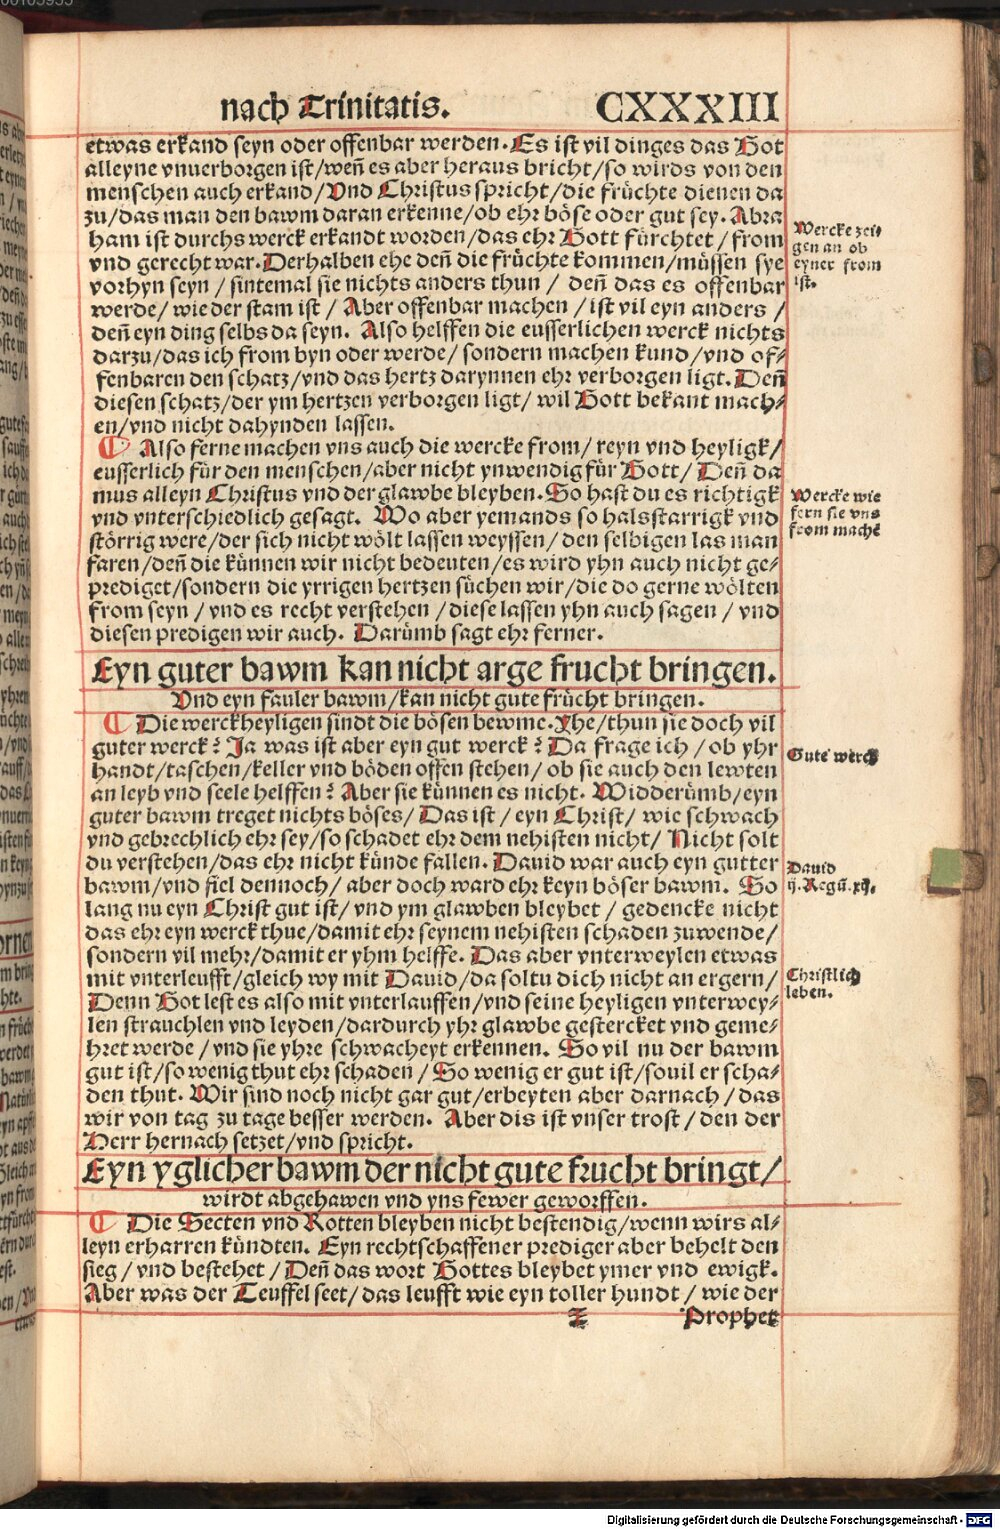 nach Trinitatis. CXXXIII
etwas erkand seyn oder offenbar werden. Es ist vil dinges das Got
alleyne vnuerborgen ist/weñ es aber heraus bricht/so wirds von den
menschen auch erkand/Vnd Christus spricht/die frůchte dienen da
zu/das man den bawm daran erkenne/ob ehr bőse oder gut sey. Abra
ham ist durchs werck erkandt worden/das ehr Gott fůrchtet/from
vnd gerecht war. Derhalben ehe deñ die frůchte kommen/můssen sye
vorhyn seyn/sintemal sie nichts anders thun/deñ das es offenbar
werde/wie der stam ist/Aber offenbar machen/ist vil eyn anders/
deñ eyn ding selbs da seyn. Also helffen die eusserlichen werck nichts
darzu/das ich from byn oder werde/sondern machen kund/vnd of⸗
fenbaren den schatz/vnd das hertz darynnen ehr verborgen ligt. Deñ
diesen schatz/der ym hertzen verborgen ligt/wil Gott bekant mach⸗
en/vnd nicht dahynden lassen.
¶ Also ferne machen vns auch die wercke from/reyn vnd heyligk/
eusserlich fůr den menschen/aber nicht ynwendig fůr Gott/Deñ da
mus alleyn Christus vnd der glawbe bleyben. So hast du es richtigk
vnd vnterschiedlich gesagt. Wo aber yemands so halsstarrigk vnd
stőrrig were/der sich nicht wőlt lassen weyssen/den selbigen las man
faren/deñ die kůnnen wir nicht bedeuten/es wird yhn auch nicht ge⸗
prediget/sondern die yrrigen hertzen sůchen wir/die do gerne wőlten
from seyn/vnd es recht verstehen/diese lassen yhn auch sagen/vnd
diesen predigen wir auch. Darůmb sagt ehr ferner.
Eyn guter bawm kan nicht arge frucht bringen.
Vnd eyn fauler bawm/kan nicht gute frůcht bringen.
¶ Die werckheyligen sindt die bősen bewme. Yhe/thun sie doch vil
guter werck? Ja was ist aber eyn gut werck? Da frage ich/ob yhr
handt/taschen/keller vnd bőden offen stehen/ob sie auch den lewten
an leyb vnd seele helffen? Aber sie kůnnen es nicht. Widderůmb/eyn
guter bawm treget nichts bőses/Das ist/eyn Christ/wie schwach
vnd gebrechlich ehr sey/so schadet ehr dem nehisten nicht/Nicht solt
du verstehen/das ehr nicht kůnde fallen. Dauid war auch eyn gutter
bawm/vnd fiel dennoch/aber doch ward ehr keyn bőser bawm. So
lang nu eyn Christ gut ist/vnd ym glawben bleybet/gedencke nicht
das ehr eyn werck thue/damit ehr seynem nehisten schaden zuwende/
sondern vil mehr/damit er yhm helffe. Das aber vnterweylen etwas
mit vnterleufft/gleich wy mit Dauid/da soltu dich nicht an ergern/
Denn Got lest es also mit vnterlauffen/vnd seine heyligen vnterwey⸗
len strauchlen vnd leyden/dardurch yhr glawbe gestercket vnd geme⸗
hret werde/vnd sie yhre schwacheyt erkennen. So vil nu der bawm
gut ist/so wenig thut ehr schaden/So wenig er gut ist/souil er scha⸗
den thut. Wir sind noch nicht gar gut/erbeyten aber darnach/das
wir von tag zu tage besser werden. Aber dis ist vnser trost/den der
Herr hernach setzet/vnd spricht.
Eyn yglicher bawm der nicht gute frucht bringt/
wirdt abgehawen vnd yns fewer geworffen.
¶ Die Secten vnd Rotten bleyben nicht bestendig/wenn wirs al⸗
leyn erharren kůndten. Eyn rechtschaffener prediger aber behelt den
sieg/vnd bestehet/Deñ das wort Gottes bleybet ymer vnd ewigk.
Aber was der Teuffel seet/das leufft wie eyn toller hundt/wie der
Prophet
Wercke zei⸗
gen an ob
eyner from
ist.
Wercke wie
fern sie vns
from machẽ
Gute werck
Dauid
ij. Regũ. xij.
Christlich
leben.
Digitalisierung gefördert durch die Deutsche Forschungsgemeinschaft - DFG